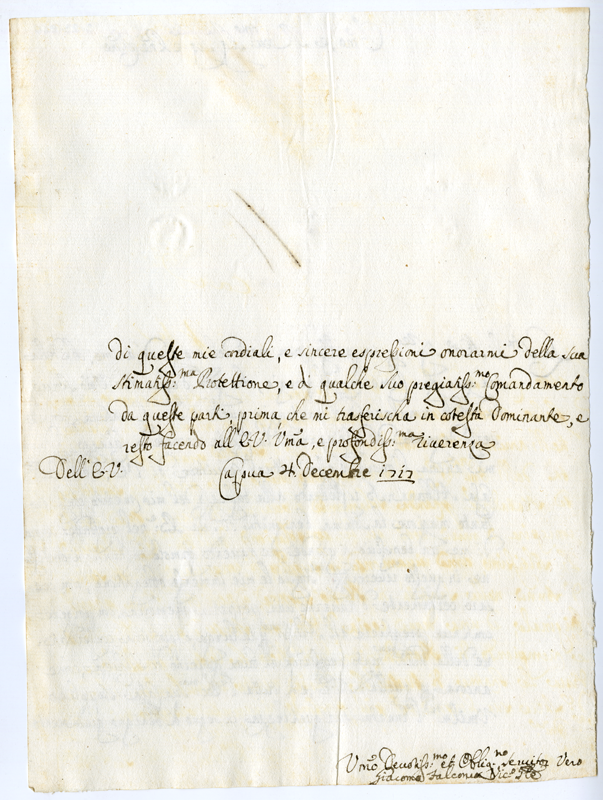 di queste mie cordiali, e sincere espressioni onorarmi della sua
stimatiss:ma Protettione, e di qualche suo pregiatiss:mo Comandamento
da queste parti, prima che mi trasferischa in cotesta Dominante, e
resto facendo all'E.V. Uma, e profondiss:ma riverenza
Dell'E.V. Capua 4 Decembre 1717
Umo Devotiss:mo et Oblig:no servitor Vero
Giacomo Falconia